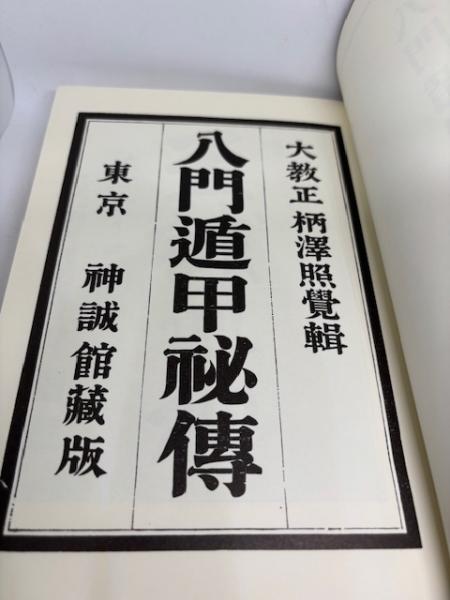 大教正 柄澤照覺輯
八門遁甲祕傳
東京 神誠館藏版